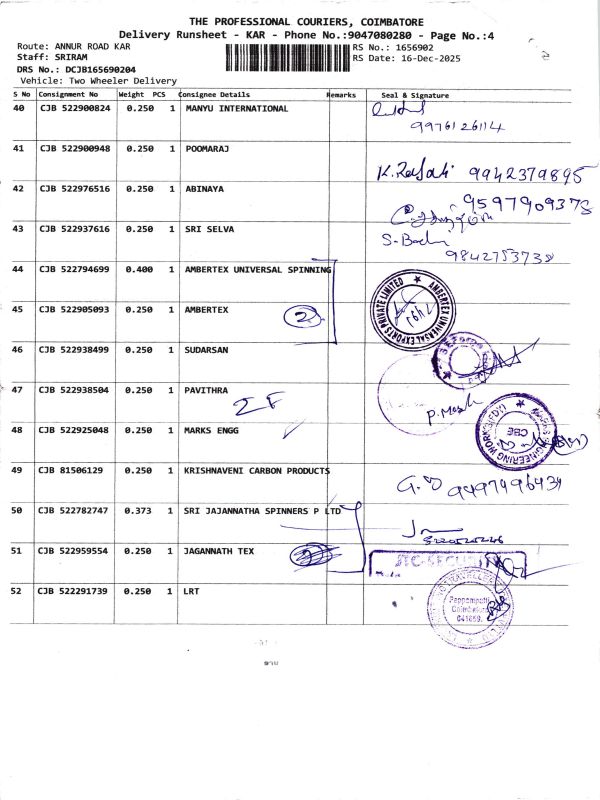 THE PROFESSIONAL COURIERS, COIMBATORE
Delivery Runsheet - KAR - Phone No.:9047080280 - Page No.:4
Route: ANNUR ROAD KAR RS No.: 1656902
Staff: SRIRAM RS Date: 16-Dec-2025
DRS No.: DCJB165690204
Vehicle: Two Wheeler Delivery
S No Consignment No Weight PCS Consignee Details Remarks Seal & Signature
40 CJB 522900824 0.250 1 MANYU INTERNATIONAL
9976126114
41 CJB 522900948 0.250 1 POOMARAJ
9942379895
42 CJB 522976516 0.250 1 ABINAYA
9597909373
43 CJB 522937616 0.250 1 SRI SELVA
9842753738
44 CJB 522794699 0.400 1 AMBERTEX UNIVERSAL SPINNING
AMBERTEX UNIVERSAL EXPORTS PRIVATE LIMITED
45 CJB 522905093 0.250 1 AMBERTEX 2
46 CJB 522938499 0.250 1 SUDARSAN
47 CJB 522938504 0.250 1 PAVITHRA
48 CJB 522925048 0.250 1 MARKS ENGG
ENGINEERING WORKS
CBE
49 CJB 81506129 0.250 1 KRISHNAVENI CARBON PRODUCTS
50 CJB 522782747 0.373 1 SRI JAJANNATHA SPINNERS P LTD
51 CJB 522959554 0.250 1 JAGANNATH TEX
52 CJB 522291739 0.250 1 LRT
Coimbatore